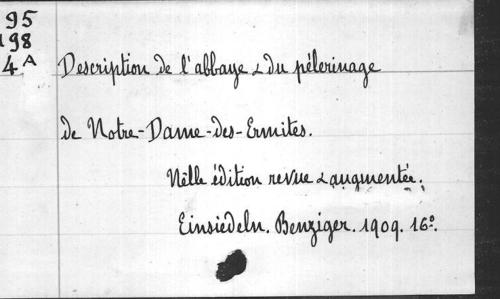 95
198
4A
Description de l'abbaye & du pélerinage
de Notre-Dame-des-Ermites.
Nelle édition revue & augmentée.
Einsiedeln. Benziger. 1909. 16°.